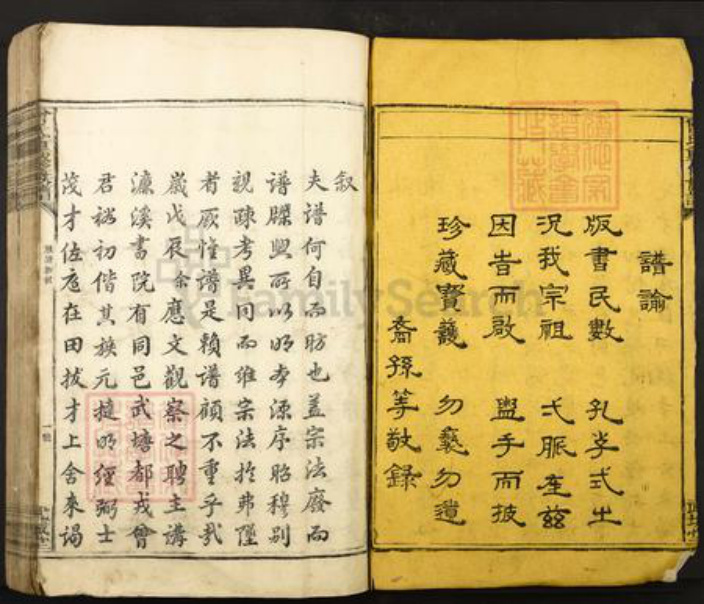 譜論
版書民數 孔孚式㞢
況我宗祖 弌脈在茲
因旹而啟 盥手而披
珍藏寳護 勿褻勿遺
裔孫等敬録
叙
夫譜何自而昉也盖宗法廢而
譜牒興所以明本源序昭穆别
親疎考異同而維宗法扵弗墜
者厥惟譜是賴譜顧不重乎哉
嵗戊辰余應文觀察之聘主講
濂溪書院有同邑武塘都戎曾
君裕初偕其族元㨗明經弼士
茂才佐庭在田拔才上舍来謁
FamilySearch